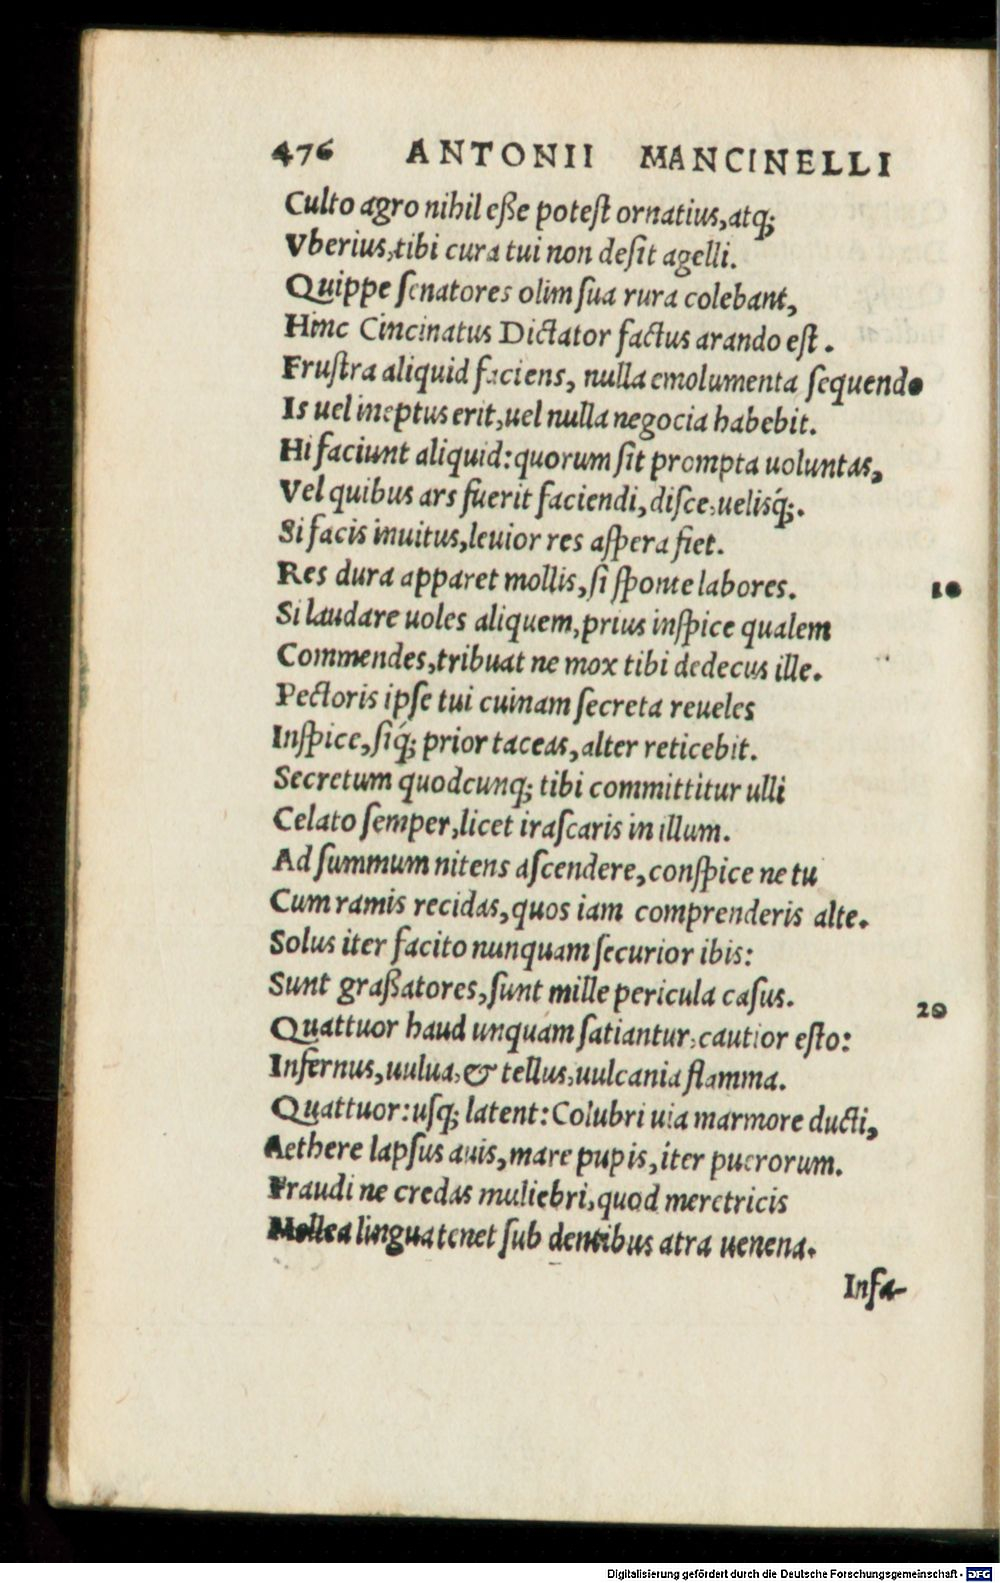 476 ANTONII MANCINELLI
Culto agro nihil eße poteſt ornatius, atq́;
Vberius, tibi cura tui non deſit agelli.
Quippe ſenatores olim ſua rura colebant,
Hinc Cincinatus Dictator factus arando eſt.
Fruſtra aliquid faciens, nulla emolumenta ſequendo
Is uel ineptus erit, uel nulla negocia habebit.
Hi faciunt aliquid: quorum ſit prompta uoluntas,
Vel quibus ars fuerit faciendi, diſce, uelisq́;.
Si facis inuitus, leuior res aſpera fiet.
Res dura apparet mollis, ſi ſponte labores. 10
Si laudare uoles aliquem, prius inſpice qualem
Commendes, tribuat ne mox tibi dedecus ille.
Pectoris ipſe tui cuinam ſecreta reueles
Inſpice, ſiq́; prior taceas, alter reticebit.
Secretum quodcunq; tibi committitur ulli
Celato ſemper, licet iraſcaris in illum.
Ad ſummum nitens aſcendere, conſpice ne tu
Cum ramis recidas, quos iam comprenderis alte.
Solus iter facito nunquam ſecurior ibis:
Sunt graßatores, ſunt mille pericula caſus. 20
Quattuor haud unquàm ſatiantur, cautior eſto:
Infernus, uulua, & tellus, uulcania flamma.
Quattuor: uſq; latent: Colubri uia marmore ducti,
Aethere lapſus auis, mare pupis, iter puerorum.
Fraudi ne credas muliebri, quod meretricis
Mellea lingua tenet ſub dentibus atra uenena.
Infa-
Digitalisierung gefördert durch die Deutsche Forschungsgemeinschaft - DFG